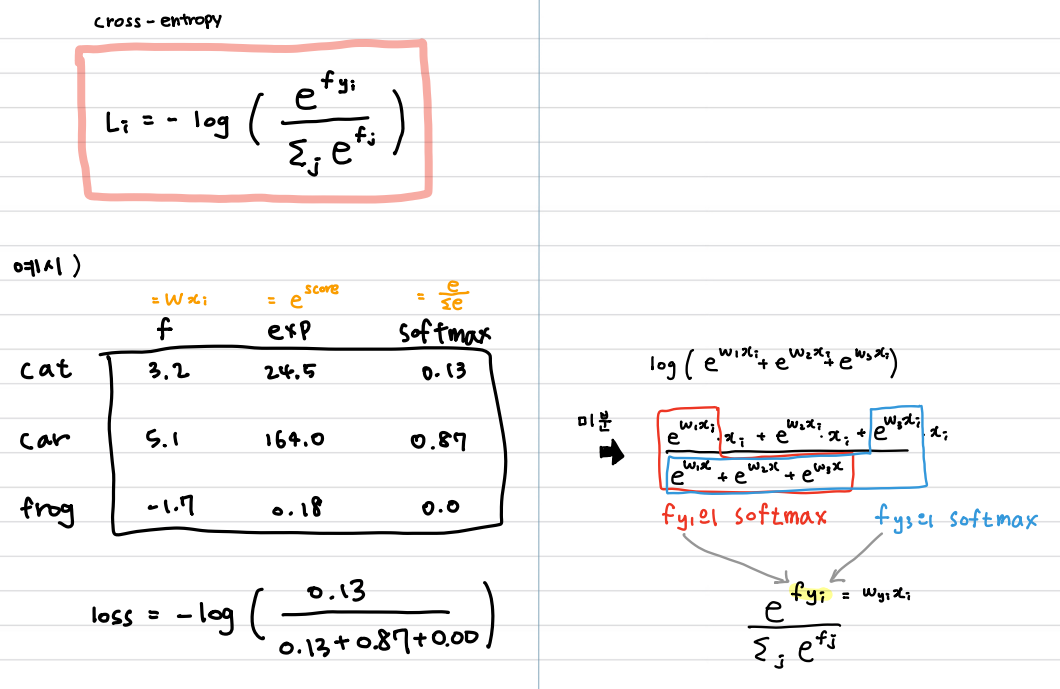 cross-entropy
Lᵢ = - log ( e^{f_{yᵢ}} / Σⱼ e^{fⱼ} )
예시)
= Wxᵢ = e^{score} = e / Σe
f exp softmax
cat 3.2 24.5 0.13
car 5.1 164.0 0.87
frog -1.7 0.18 0.0
loss = -log ( 0.13 / 0.13+0.87+0.00 )
log ( e^{w₁xᵢ} + e^{w₂xᵢ} + e^{w₃xᵢ} )
미분
e^{w₁xᵢ}·xᵢ + e^{w₂xᵢ}·xᵢ + e^{w₃xᵢ}·xᵢ
e^{w₁x} + e^{w₂x} + e^{w₃x}
f_{y₁}의 softmax f_{y₃}의 softmax
e^{f_{yᵢ}} = w_{yᵢ}xᵢ
Σⱼ e^{fⱼ}